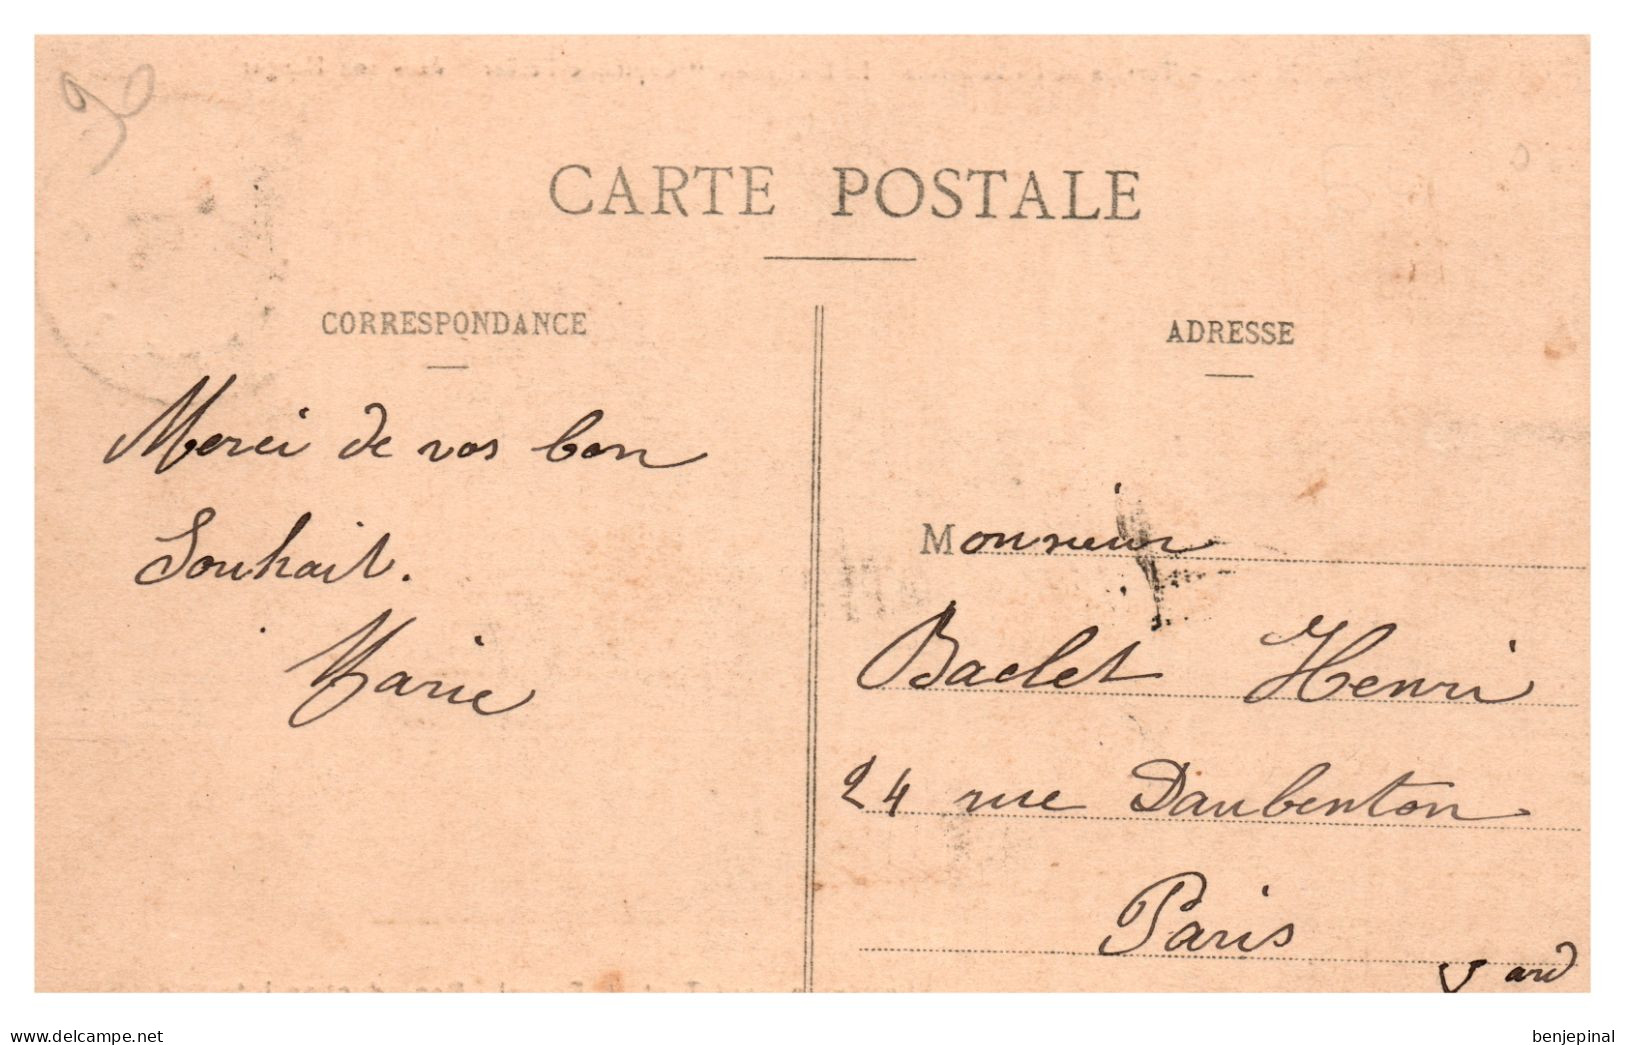 30
CARTE POSTALE
CORRESPONDANCE
ADRESSE
Merci de vos bon
Souhait.
Marie
Monsieur
Baclet Henri
24 rue Daubenton
Paris
V ard
delcampe.net
benjepinal